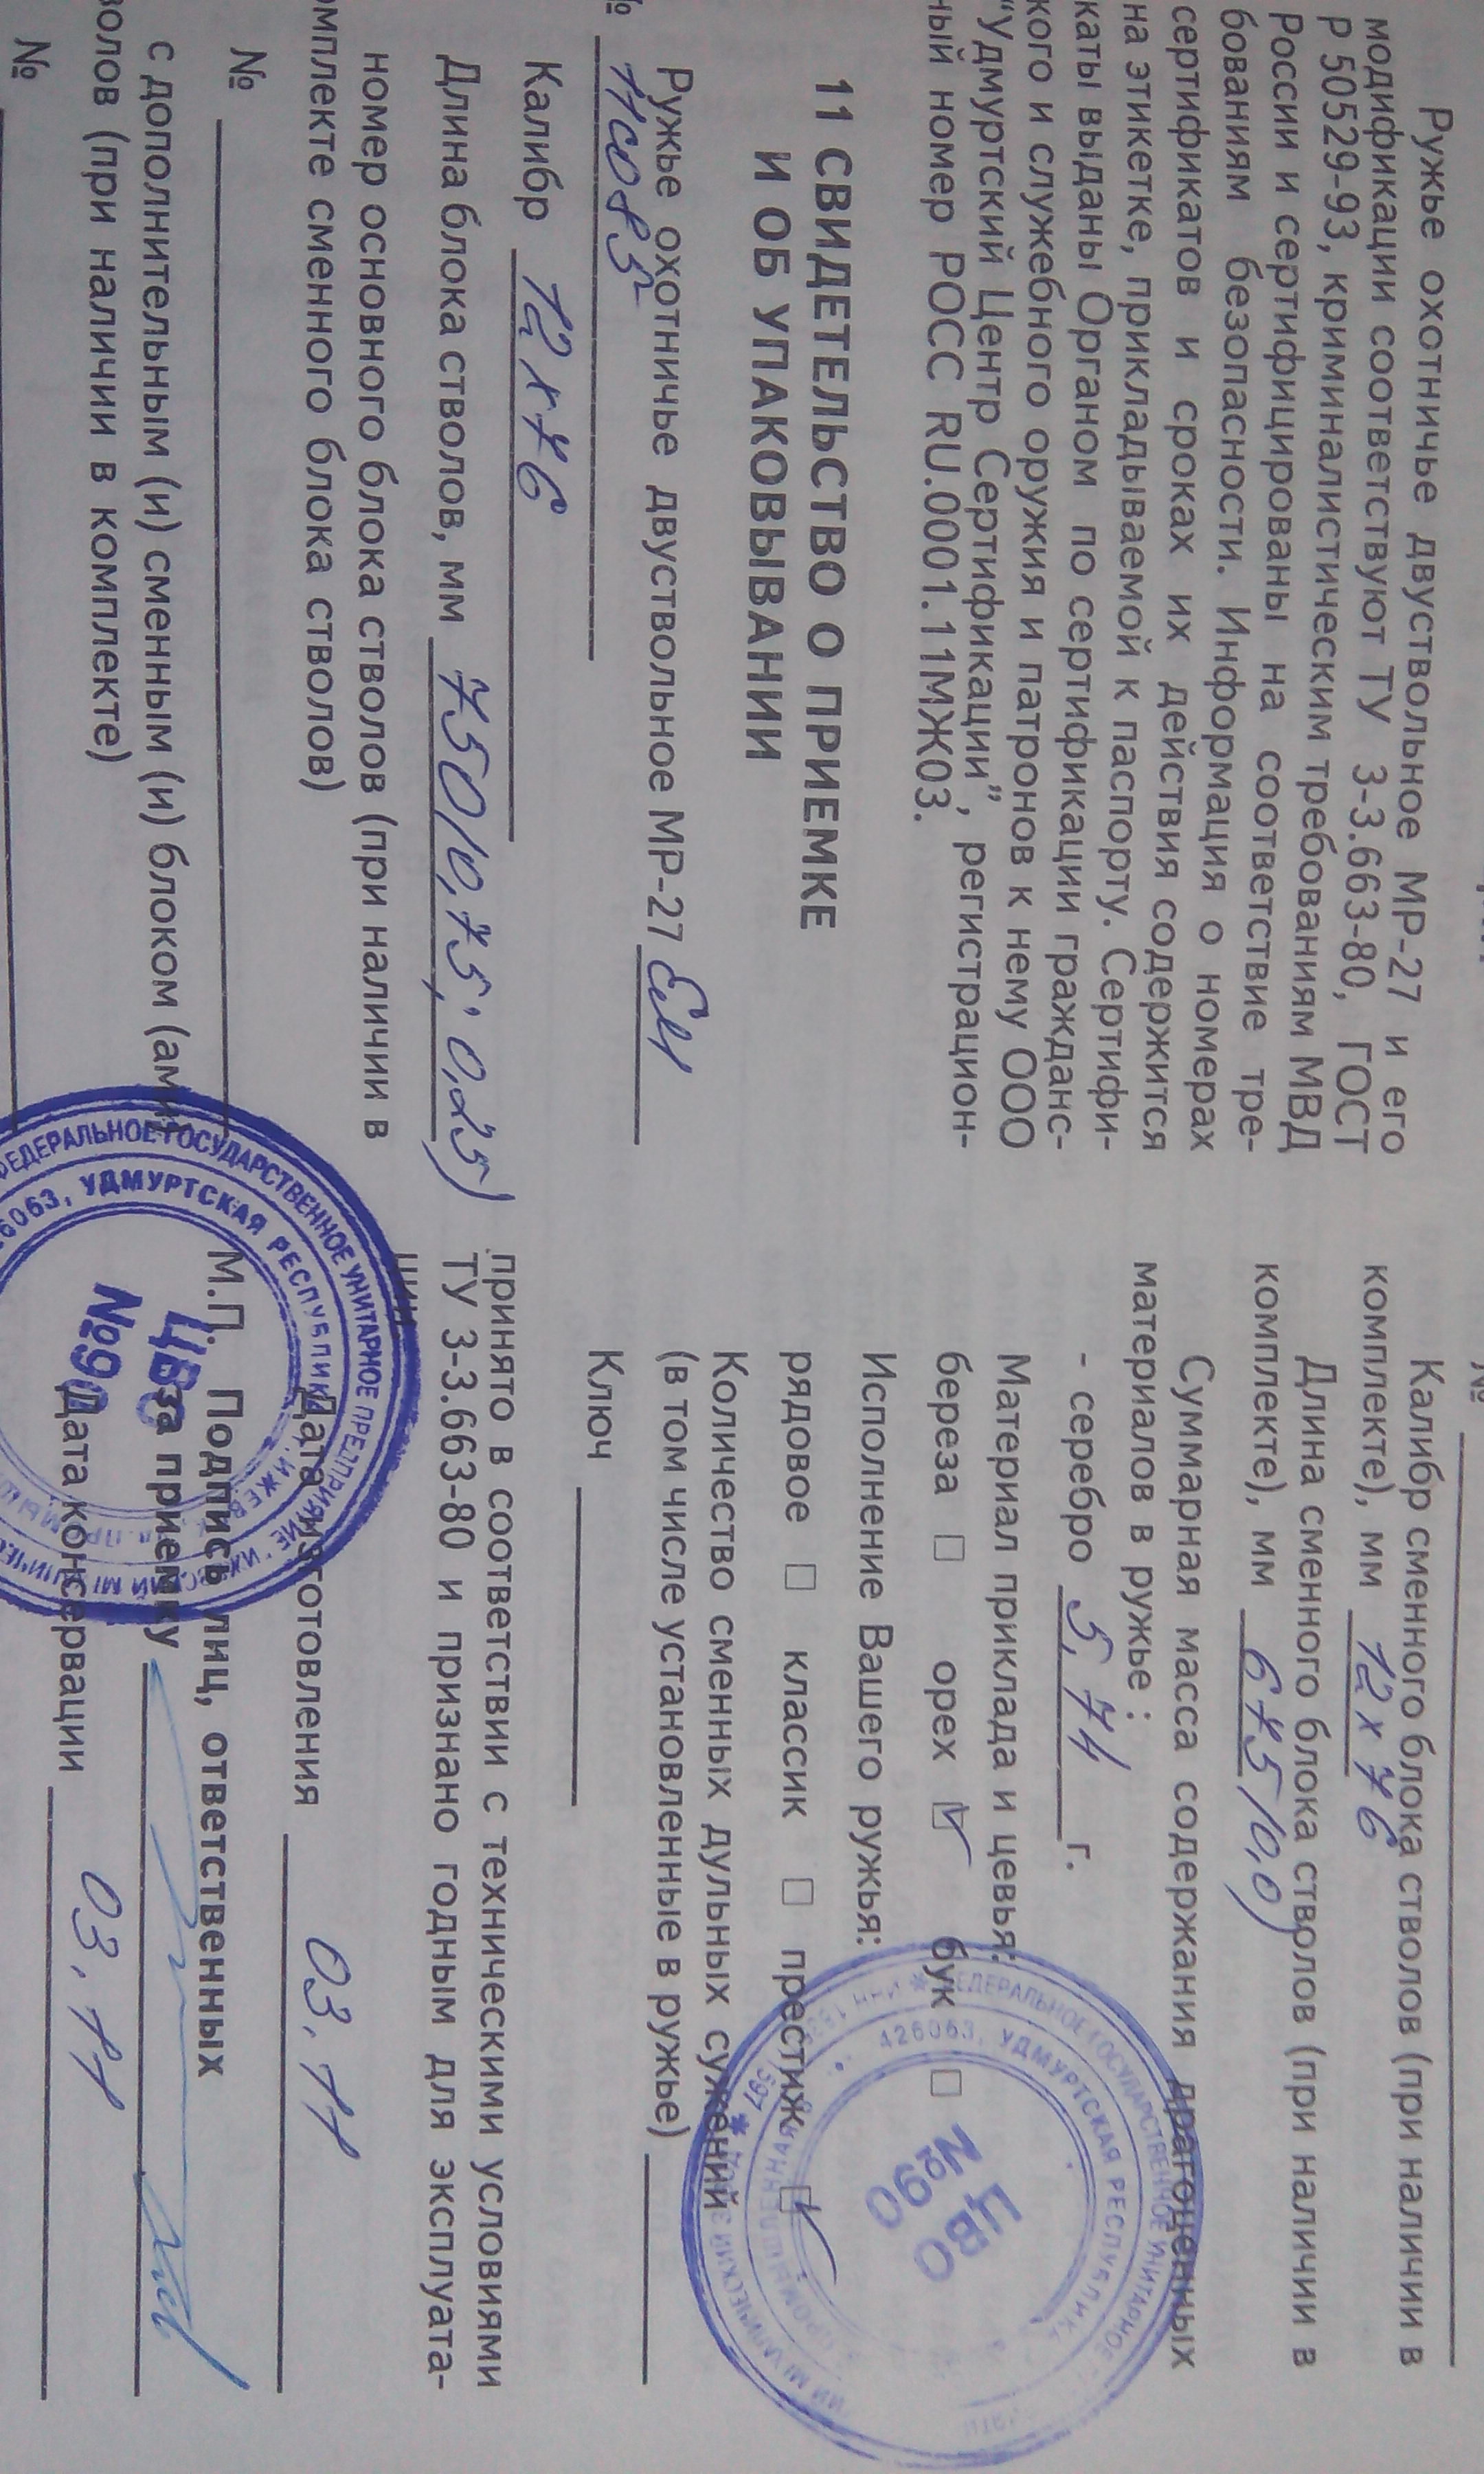 Ружье охотничье двуствольное МР-27 и его
модификации соответствуют ТУ 3-3.663-80, ГОСТ
Р 50529-93, криминалистическим требованиям МВД
России и сертифицированы на соответствие тре-
бованиям безопасности. Информация о номерах
сертификатов и сроках их действия содержится
на этикетке, прикладываемой к паспорту. Сертифи-
каты выданы Органом по сертификации гражданс-
кого и служебного оружия и патронов к нему ООО
“Удмуртский Центр Сертификации”, регистрацион-
ный номер РОСС RU.0001.11МЖ03.
11 СВИДЕТЕЛЬСТВО О ПРИЕМКЕ
И ОБ УПАКОВЫВАНИИ
Ружье охотничье двуствольное МР-27 Ем
№
Калибр 12х76
Длина блока стволов, мм 750(0,75; 0,25)
номер основного блока стволов (при наличии в
омплекте сменного блока стволов)
№
с дополнительным (и) сменным (и) блоком (ами)
волов (при наличии в комплекте)
№
№
Калибр сменного блока стволов (при наличии в
комплекте), мм 12х76
Длина сменного блока стволов (при наличии в
комплекте), мм 675(0,0)
Суммарная масса содержания драгоценных
материалов в ружье :
- серебро 5,74 г.
Материал приклада и цевья:
береза □ орех ☑ бук □
Исполнение Вашего ружья:
рядовое □ классик □ престиж ☑
Количество сменных дульных сужений
(в том числе установленные в ружье)
Ключ
принято в соответствии с техническими условиями
ТУ 3-3.663-80 и признано годным для эксплуата-
ции
Дата изготовления 03.11
М.П. Подпись лиц, ответственных
за приемку
Дата консервации 03.11
ФЕДЕРАЛЬНОЕ ГОСУДАРСТВЕННОЕ УНИТАРНОЕ ПРЕДПРИЯТИЕ
УДМУРТСКАЯ РЕСПУБЛИКА
№90
426063, УДМУРТСКАЯ РЕСПУБЛИКА
ФЕДЕРАЛЬНОЕ ГОСУДАРСТВЕННОЕ УНИТАРНОЕ
№90